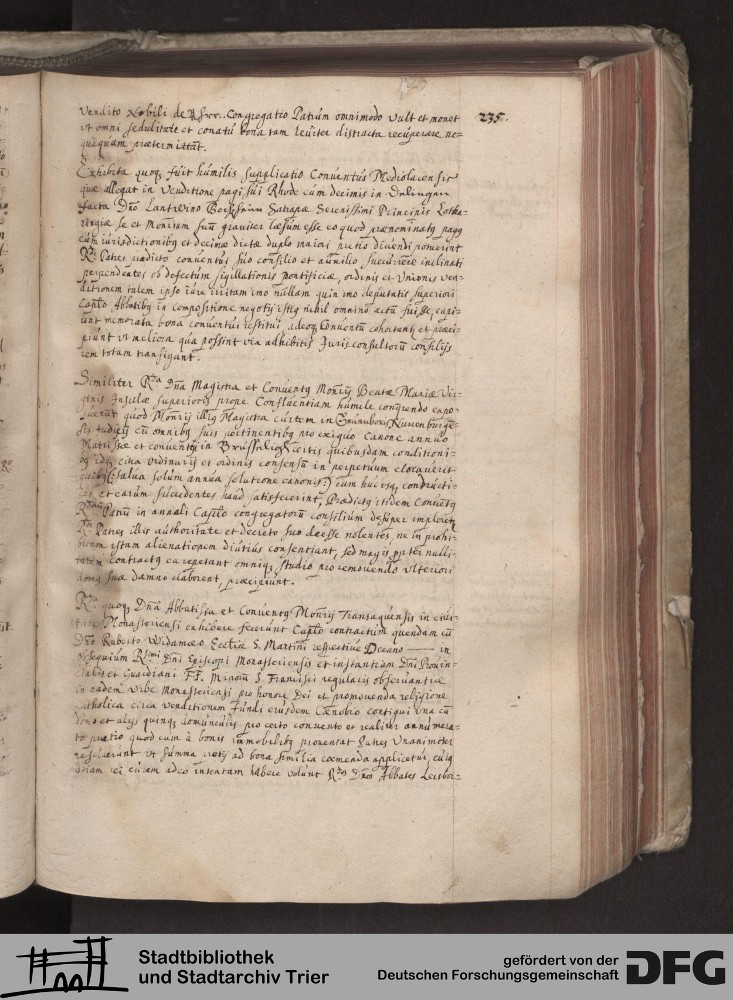 235.
vendito Nobili de Congregatio Patrum omnimodo vult et monet
vt omni sedulitate et conatu bona tam leuiter distracta recuperare ne=
quaquam prætermittat.
Exhibita quoq fuit humilis supplicatio Conuentus Mediolacensis
quæ allegat in venditione pagi sui Rhode cum decimis in
facta Dno Lantwino Satrapæ Serenissimi Principis Lotha=
ringiæ se et Monrium suu grauiter læsum esse eo quod prænominatq pagq
cum iurisdictionibq et decimæ dictæ duplo maiori pretio diuendi potuerint
Rdi Patres prædicto conuentui suo consilio et auxilio succurrere inclinati
perpendentes ob defectum sigillationis pontificiæ, ordinis et Vnionis ven=
ditionem talem ipso iure irritam imo nullam quin imo deputatis superiori
Caplo Abbatibq in compositione negotij istiq nihil omnino actu fuisse, cupi=
unt memorata bona conuentui restitui, adeoq Conuentu cohortantur et præci=
piunt vt meliora qua possint via adhibitis Juris consultoru consilijs
rem totam transigant.
Similiter Rda Dna Magistra et Conuentq Monrij Beatæ Mariæ Vir=
ginis Insulæ superioris prope Confluentiam humile congrendo expo=
suerunt quod Monrij illiq Magistra curtem in
sis Judicij cu omnibq suis pertinentibq pro exiguo Canone annuo
Matrissæ et conuentui in certis quibusdam conditioni=
bq idq citra ordinarij et ordinis consensu in perpetuum elocauerit
quibq (: salua solum annua solutione canonis :) cum hucusq conducti=
ces et earum succedentes haud satisfecerint, Prædictq itidem Conuentq
Rdorum Patru in annali Caplo congregatoru consilium desuper imploret,
Rdi Patres illis authoritate et decreto suo deesse nolentes, ne in prohi=
bitum istam alienationem diutius consentiant, sed magis propter nulli=
tatem contractq ea repetant omniq studio pro remouendo vlteriori
domq suæ damno elaborent, præcipiunt.
Rda quoq Dna Abbatissa et Conuentq Monrij Transaquensis in ciui=
tate Monasteriensi exhibere fecerunt Caplo contractum quendam cu
Dno Ruberto Ecclæ S. Martini respectiue Decano —— in
obsequium Rssimi Dni Episcopi Monasteriensis et instantiam Dni Prouin=
cialis et Guardiani FF. Minoru S. Francisci regularis obseruantiæ
in eadem vrbe Monasteriensi pro honore Dei et promouenda religione
catholica circa venditionem fundi eiusdem Cænobio contigui vna cu
domo et alijs quinq domunculis pro certo conuento et realiter annumera=
to pretio quod cum à bonis immobilibq proueniat Patres Vnanimiter
resoluerunt vt summa pretij ad bona similia coemenda applicetur, cuiq
etiam rei curam adeo intentam habere volunt Rdos Dnos Abbates Leisbor=
Stadtbibliothek
und Stadtarchiv Trier
gefördert von der
Deutschen Forschungsgemeinschaft
DFG